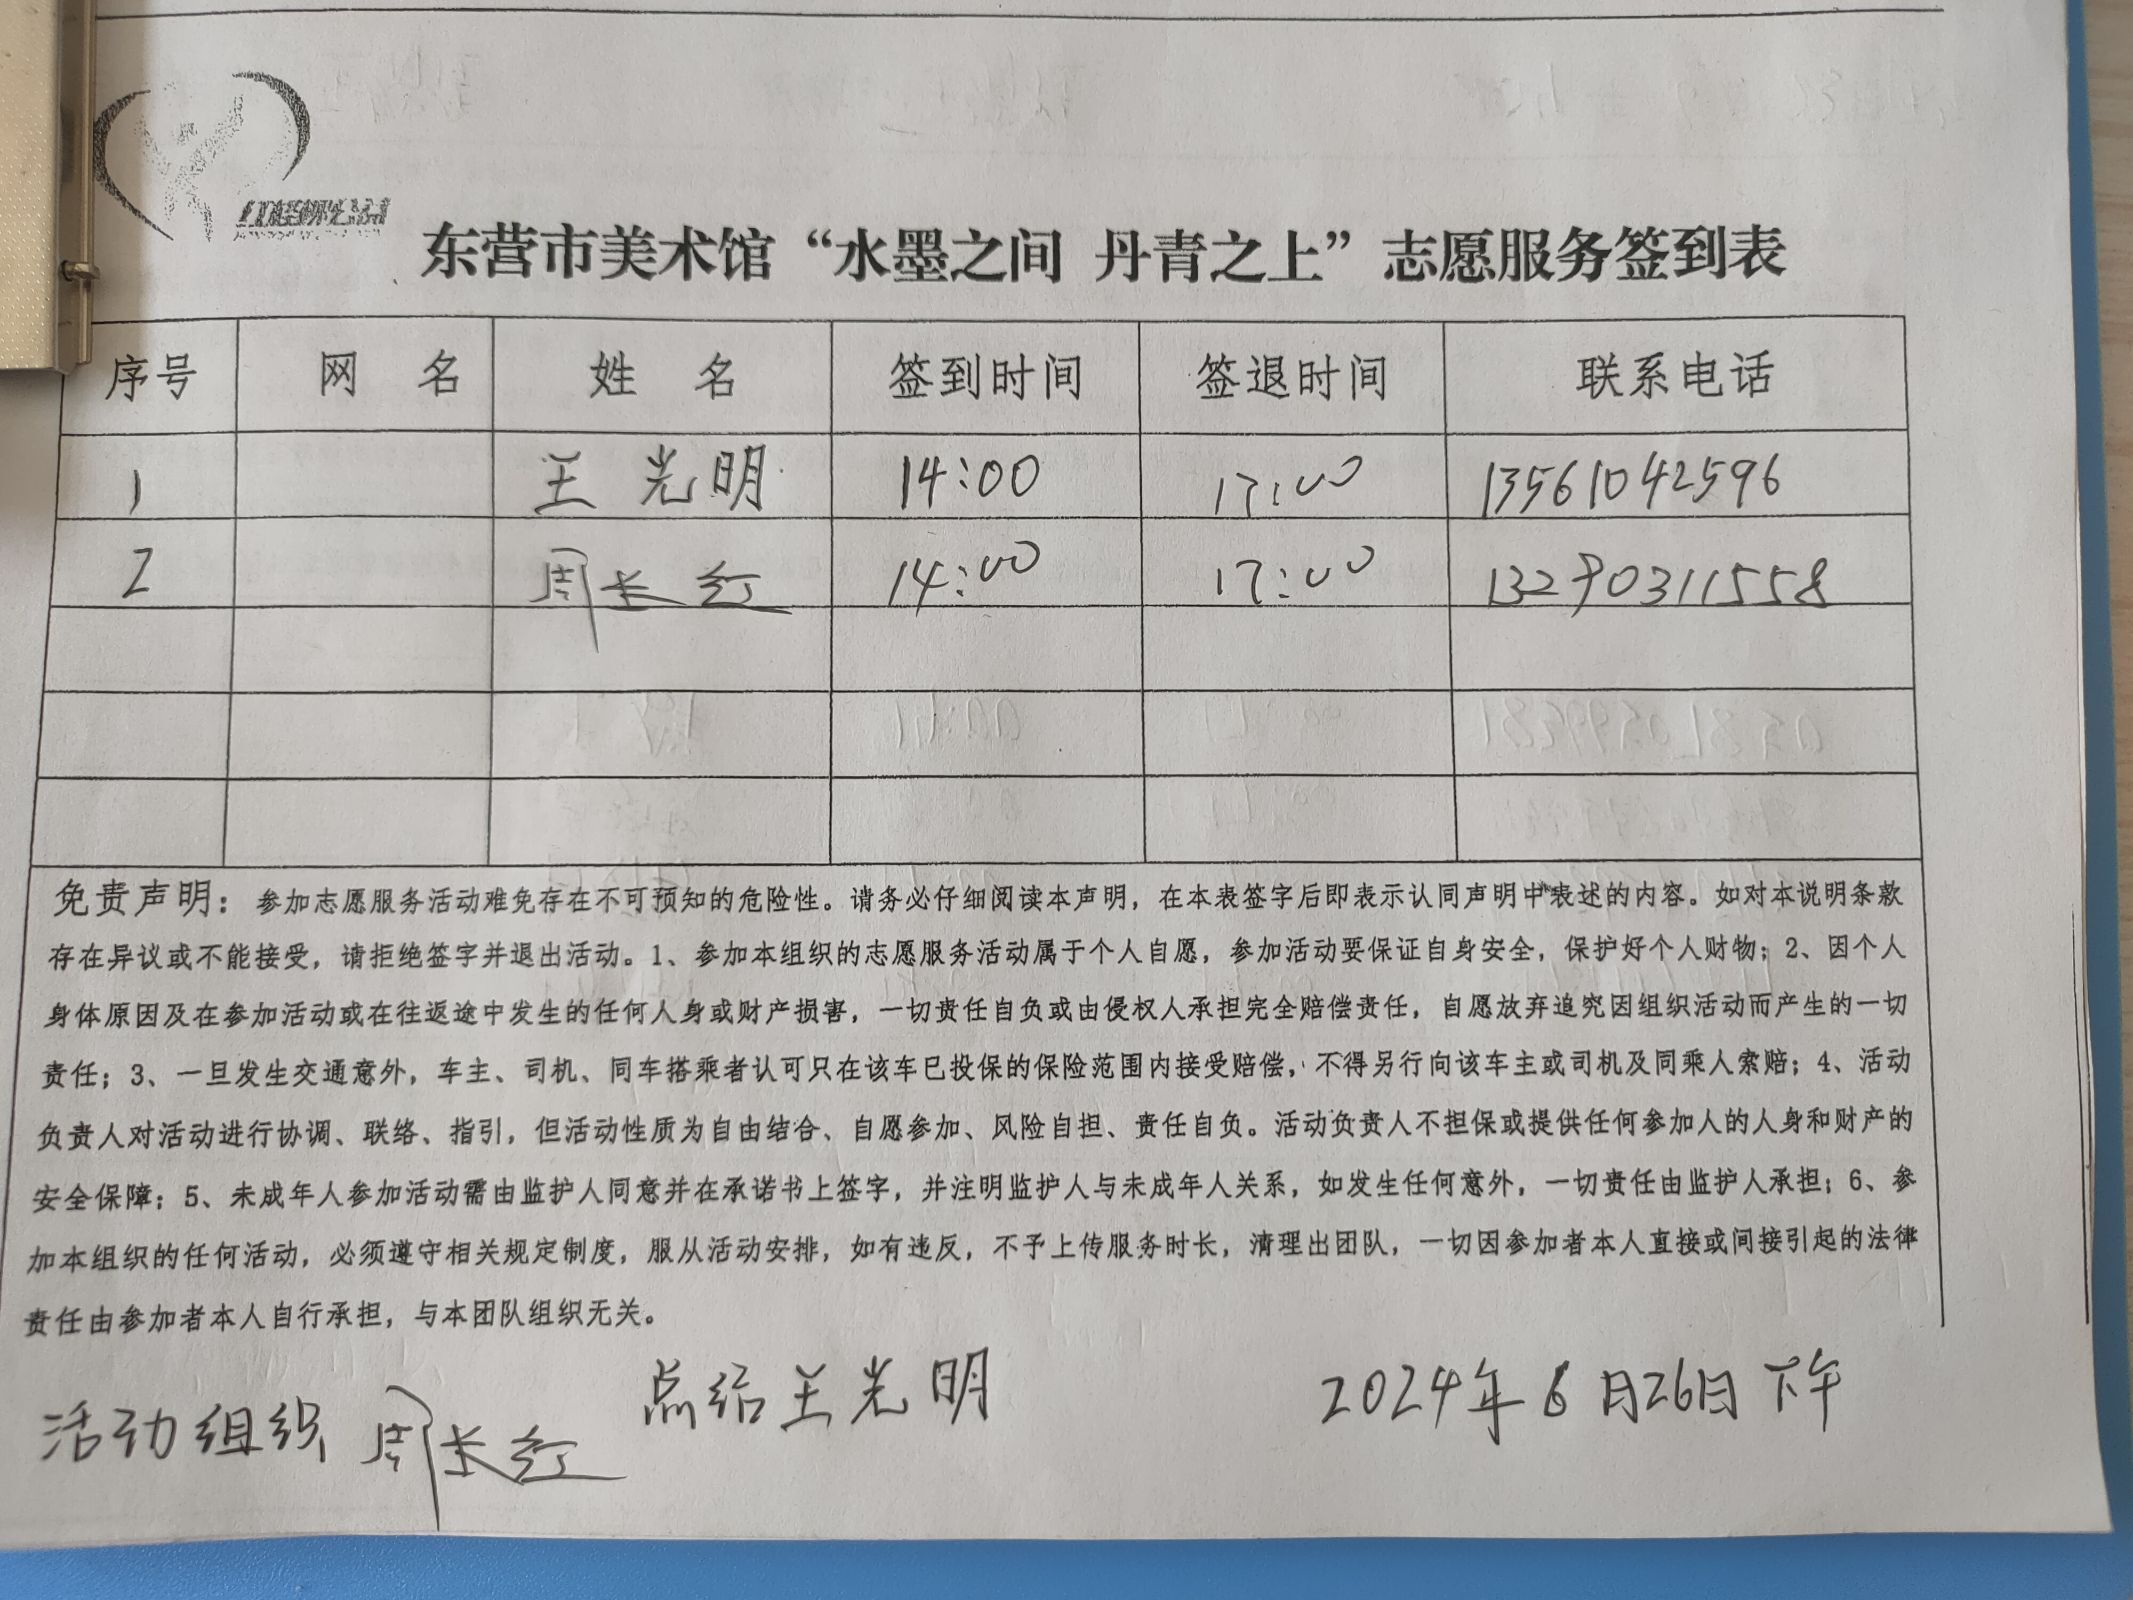 东营市美术馆“水墨之间 丹青之上”志愿服务签到表
序号 网 名 姓 名 签到时间 签退时间 联系电话
1 王光明 14:00 17:00 13561042596
2 周长红 14:00 17:00 13290311558
免责声明：参加志愿服务活动难免存在不可预知的危险性。请务必仔细阅读本声明，在本表签字后即表示认同声明中表述的内容。如对本说明条款
存在异议或不能接受，请拒绝签字并退出活动。1、参加本组织的志愿服务活动属于个人自愿，参加活动要保证自身安全，保护好个人财物；2、因个人
身体原因及在参加活动或在往返途中发生的任何人身或财产损害，一切责任自负或由侵权人承担完全赔偿责任，自愿放弃追究因组织活动而产生的一切
责任；3、一旦发生交通意外，车主、司机、同车搭乘者认可只在该车已投保的保险范围内接受赔偿，不得另行向该车主或司机及同乘人索赔；4、活动
负责人对活动进行协调、联络、指引，但活动性质为自由结合、自愿参加、风险自担、责任自负。活动负责人不担保或提供任何参加人的人身和财产的
安全保障；5、未成年人参加活动需由监护人同意并在承诺书上签字，并注明监护人与未成年人关系，如发生任何意外，一切责任由监护人承担；6、参
加本组织的任何活动，必须遵守相关规定制度，服从活动安排，如有违反，不予上传服务时长，清理出团队，一切因参加者本人直接或间接引起的法律
责任由参加者本人自行承担，与本团队组织无关。
活动组织 周长红 总结王光明 2024年6月26日下午